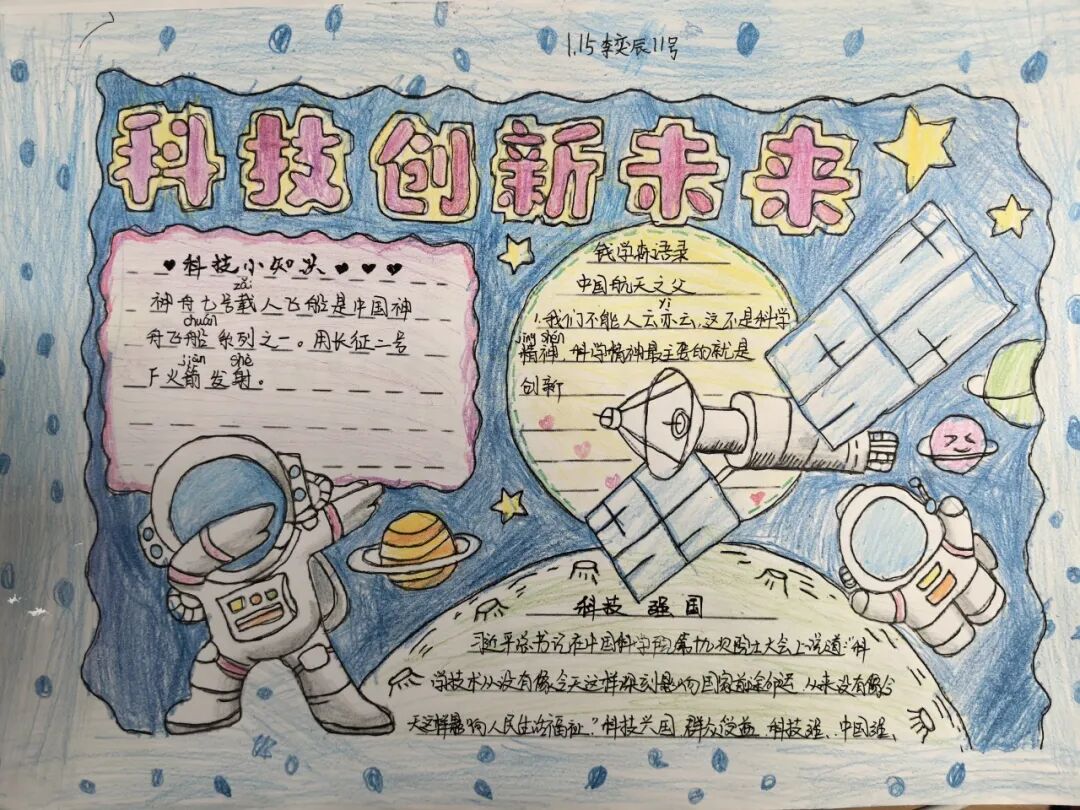 1.15李奕辰11号
科技创新未来
♥科技小知识♥♥♥
zǎi
神舟七号载人飞船是中国神
chuán
舟飞船系列之一。用长征二号
jiàn shè
F火箭发射。
钱学森语录
中国航天之父
yì
1.我们不能人云亦云,这不是科学
jīng shén
精神,科学精神最主要的就是
创新
科技 强国
习近平总书记在中国科学院第十九次院士大会上说道:"科
学技术从没有像今天这样深刻影响国家前途命运,从来没有像今
天这样影响人民生活福祉。"科技兴国,群众受益,科技强、中国强、